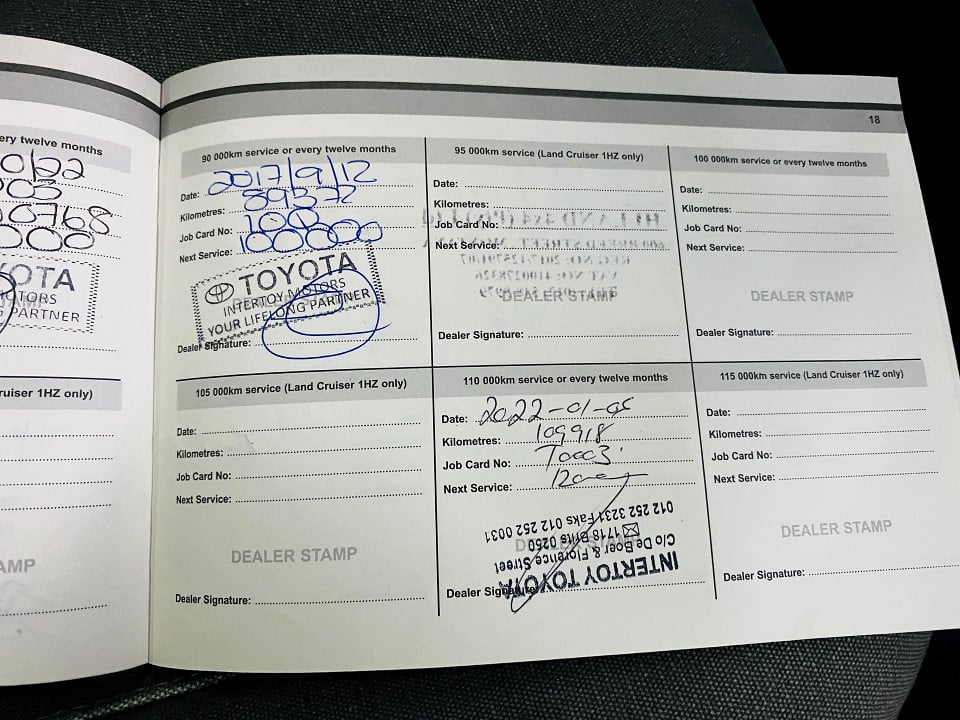 ery twelve months
0/22
003
00768
000
YOTA
MOTORS
G PARTNER
ruiser 1HZ only)
AMP
18
90 000km service or every twelve months
Date: 2017/9/12
Kilometres: 89372
Job Card No: 100
Next Service: 100000
TOYOTA
INTERTOY MOTORS
YOUR LIFELONG PARTNER
Dealer Signature:
95 000km service (Land Cruiser 1HZ only)
Date:
Kilometres:
Job Card No:
Next Service:
DEALER STAMP
Dealer Signature:
100 000km service or every twelve months
Date:
Kilometres:
Job Card No:
Next Service:
DEALER STAMP
Dealer Signature:
105 000km service (Land Cruiser 1HZ only)
Date:
Kilometres:
Job Card No:
Next Service:
DEALER STAMP
Dealer Signature:
110 000km service or every twelve months
Date: 2022-01-05
Kilometres: 109918
Job Card No: T0003
Next Service:
INTERTOY TOYOTA
C/o De Boer & Florence Street
1718 Brits 0250
012 252 3231 Faks 012 252 0031
Dealer Signature:
115 000km service (Land Cruiser 1HZ only)
Date:
Kilometres:
Job Card No:
Next Service:
DEALER STAMP
Dealer Signature: